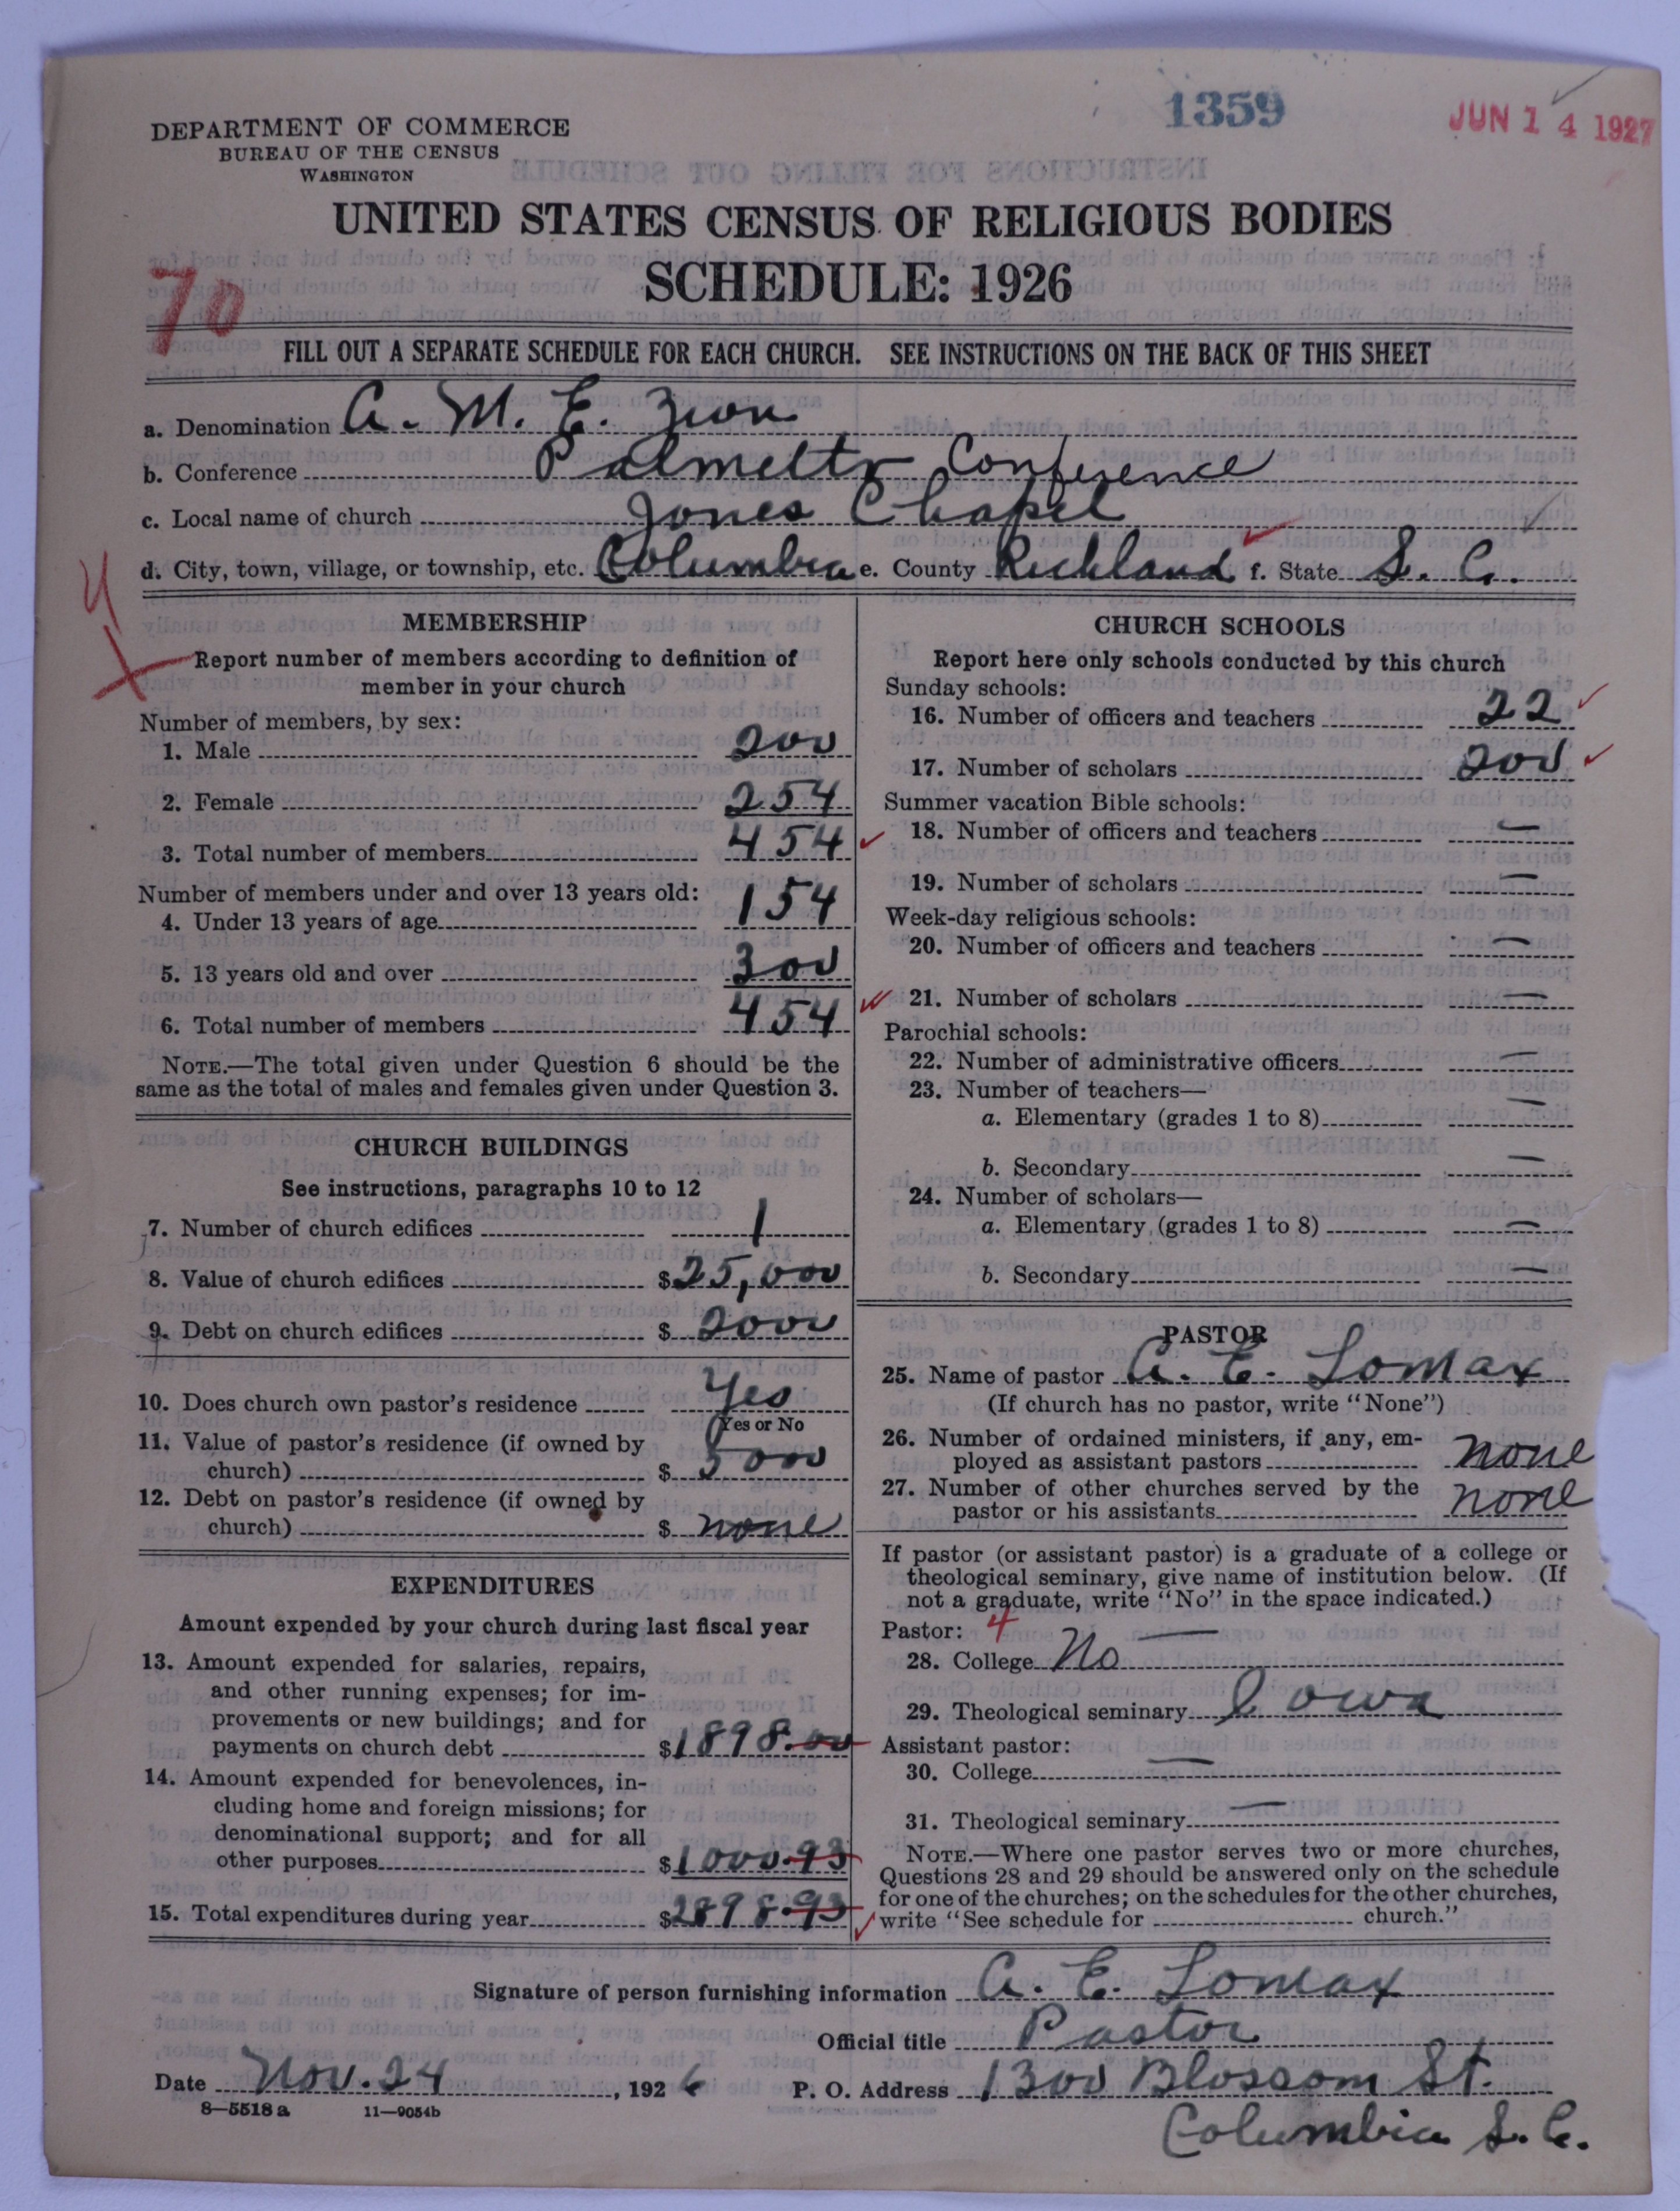 1359
JUN 14 1927
DEPARTMENT OF COMMERCE
BUREAU OF THE CENSUS
WASHINGTON
UNITED STATES CENSUS OF RELIGIOUS BODIES
SCHEDULE: 1926
70
FILL OUT A SEPARATE SCHEDULE FOR EACH CHURCH. SEE INSTRUCTIONS ON THE BACK OF THIS SHEET
a. Denomination A. M. E. Zion
b. Conference Palmetto Conference
c. Local name of church Jones Chapel
d. City, town, village, or township, etc. Columbia e. County Richland f. State S. C.
MEMBERSHIP
Report number of members according to definition of
member in your church
Number of members, by sex:
1. Male 200
2. Female 254
3. Total number of members 454
Number of members under and over 13 years old:
4. Under 13 years of age 154
5. 13 years old and over 300
6. Total number of members 454
NOTE.—The total given under Question 6 should be the
same as the total of males and females given under Question 3.
CHURCH BUILDINGS
See instructions, paragraphs 10 to 12
7. Number of church edifices 1
8. Value of church edifices $25,000
9. Debt on church edifices $ 2000
10. Does church own pastor's residence Yes
(Yes or No
11. Value of pastor's residence (if owned by
church) $ 5000
12. Debt on pastor's residence (if owned by
church) $ none
EXPENDITURES
Amount expended by your church during last fiscal year
13. Amount expended for salaries, repairs,
and other running expenses; for im-
provements or new buildings; and for
payments on church debt $1898.00
14. Amount expended for benevolences, in-
cluding home and foreign missions; for
denominational support; and for all
other purposes $1000.93
15. Total expenditures during year $2898.93
CHURCH SCHOOLS
Report here only schools conducted by this church
Sunday schools:
16. Number of officers and teachers 22
17. Number of scholars 200
Summer vacation Bible schools:
18. Number of officers and teachers —
19. Number of scholars —
Week-day religious schools:
20. Number of officers and teachers —
21. Number of scholars —
Parochial schools:
22. Number of administrative officers —
23. Number of teachers—
a. Elementary (grades 1 to 8) —
b. Secondary —
24. Number of scholars—
a. Elementary (grades 1 to 8) —
b. Secondary —
PASTOR
25. Name of pastor A. E. Lomax
(If church has no pastor, write "None")
26. Number of ordained ministers, if any, em-
ployed as assistant pastors none
27. Number of other churches served by the
pastor or his assistants none
If pastor (or assistant pastor) is a graduate of a college or
theological seminary, give name of institution below. (If
not a graduate, write "No" in the space indicated.)
Pastor: 4
28. College No —
29. Theological seminary Iowa
Assistant pastor:
30. College —
31. Theological seminary —
NOTE.—Where one pastor serves two or more churches,
Questions 28 and 29 should be answered only on the schedule
for one of the churches; on the schedules for the other churches,
write "See schedule for church."
Signature of person furnishing information A. E. Lomax
Official title Pastor
Date Nov. 24, 1926 P. O. Address 1300 Blossom St.
8—5518 a 11—9054b
Columbia S. C.